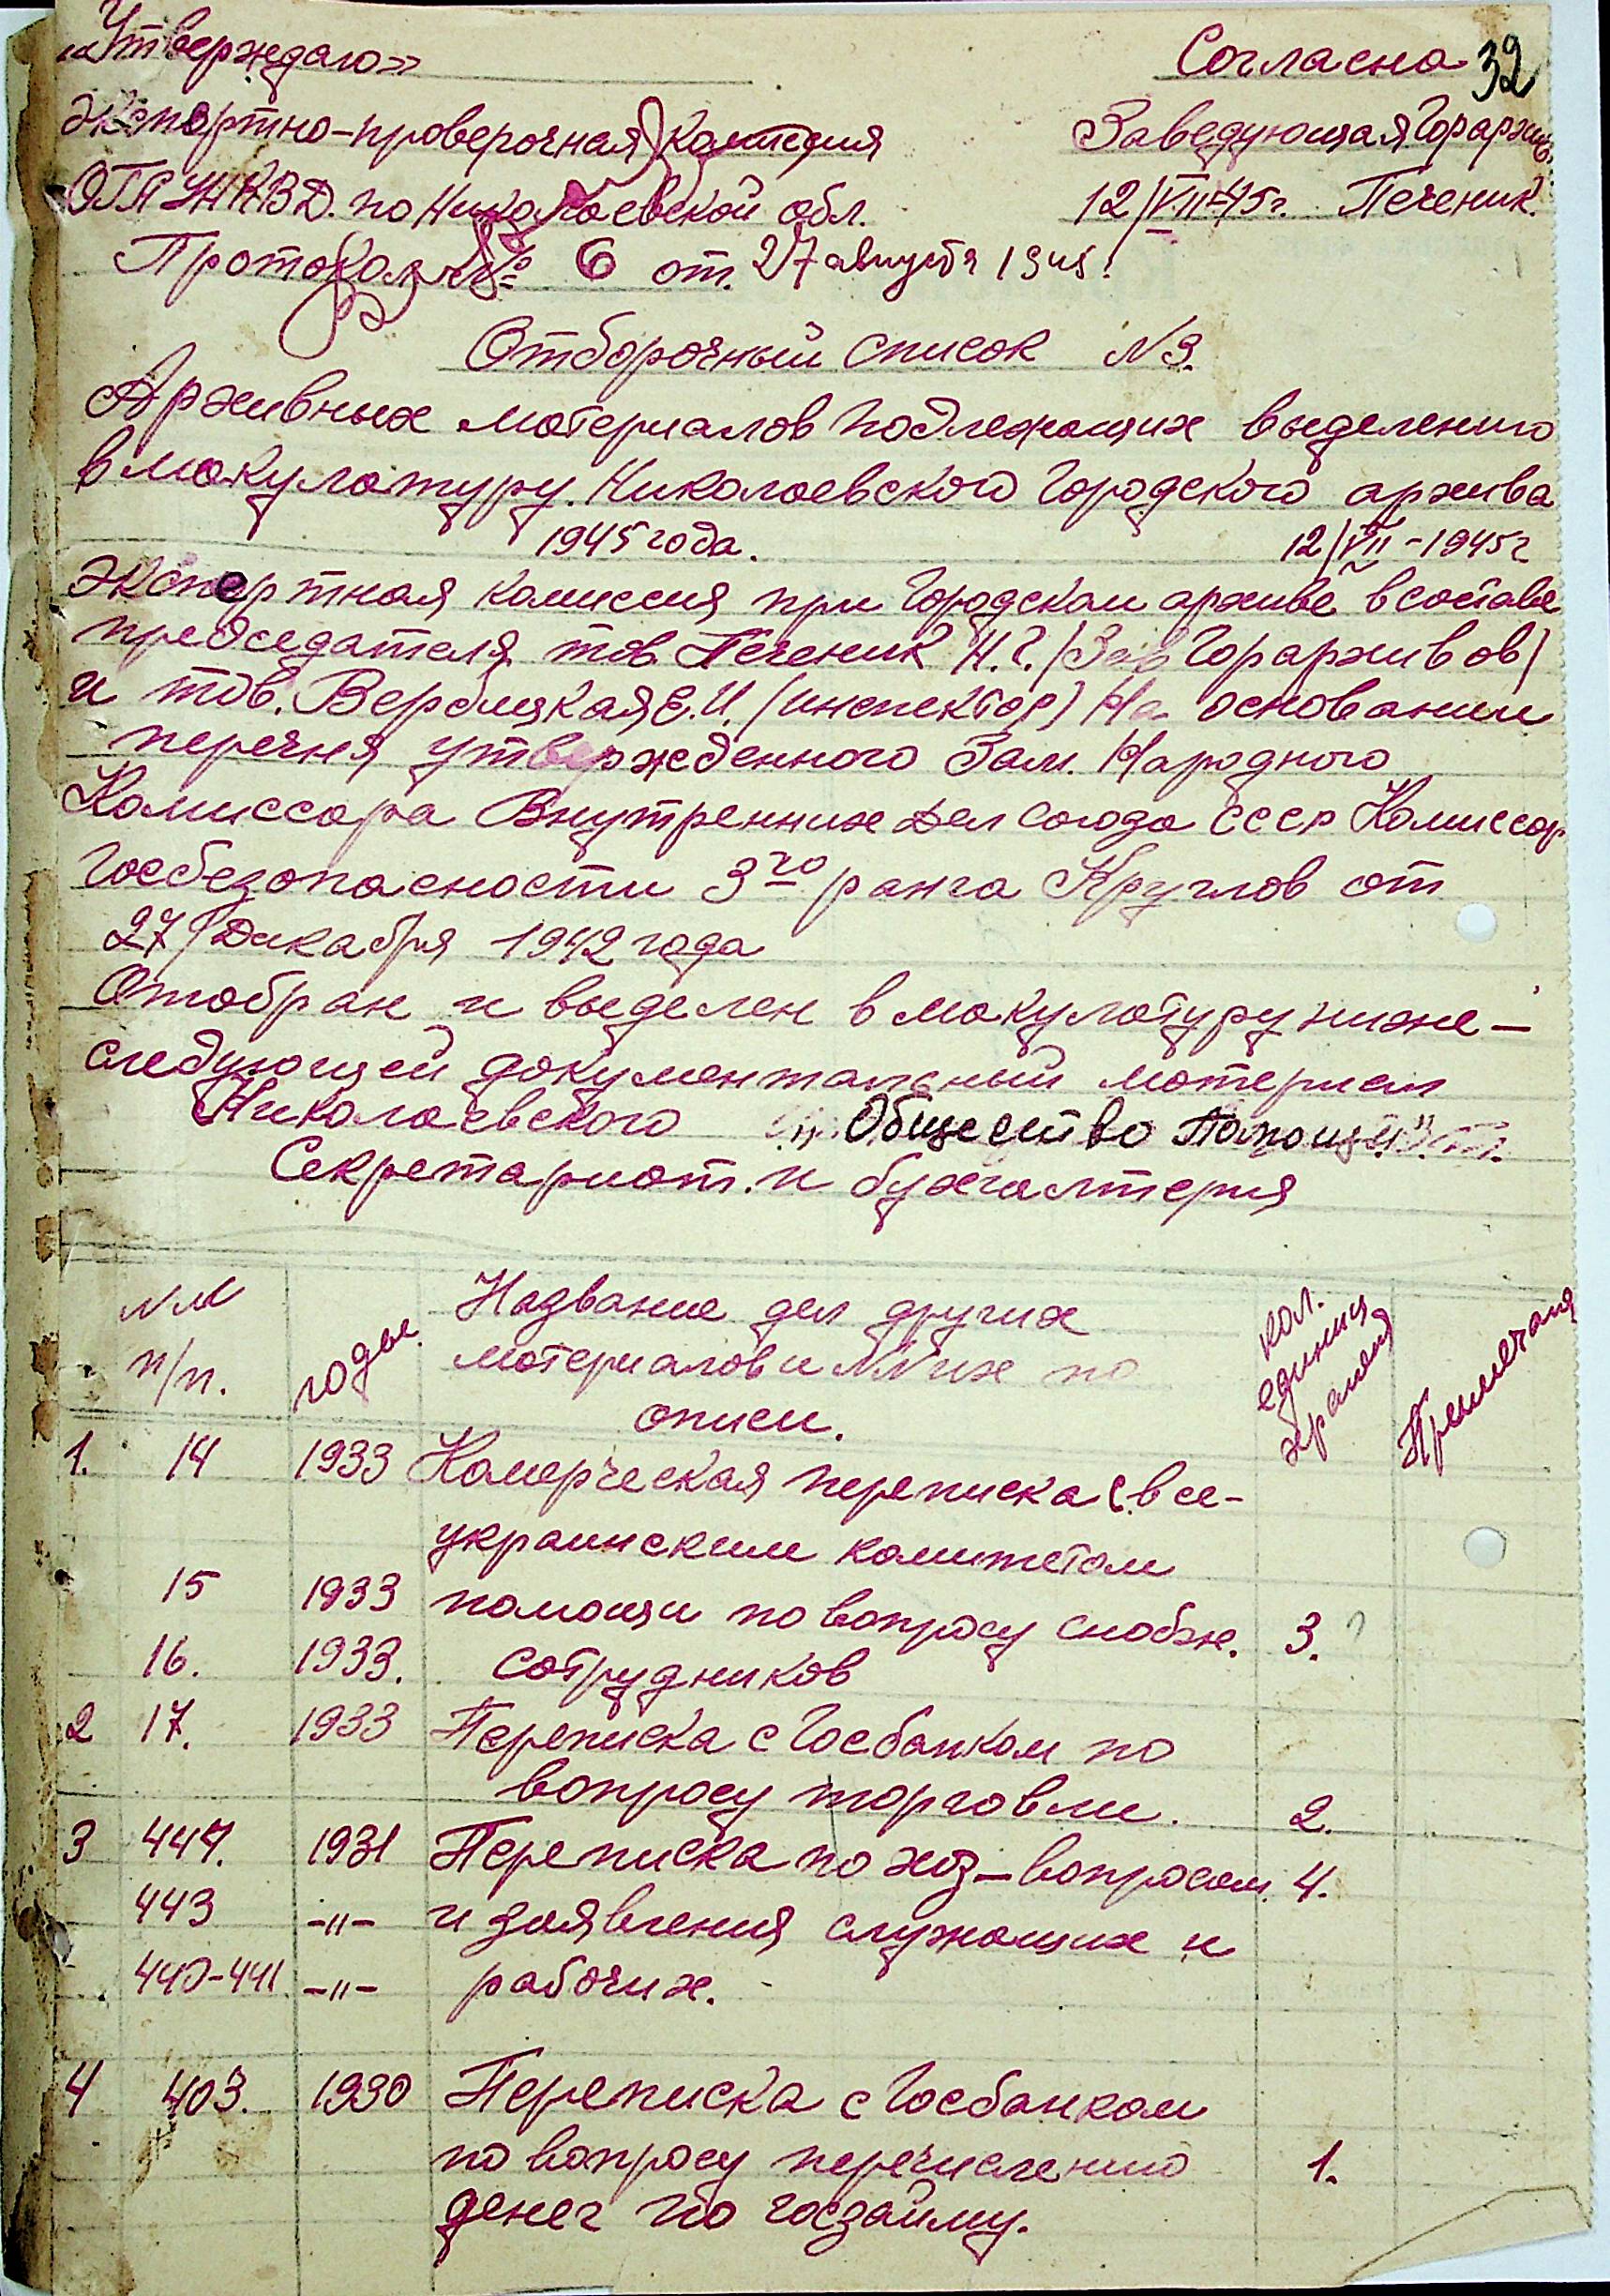 «Утверждаю»
Согласна 32
Экспертно-проверочная комиссия
Заведующая Горархив.
ОГА УНКВД. по Николаевской обл.
12/VII-45г. Печеник.
Протокол № 6 от. 27 августа 1945г.
Отборочный список N3.
Архивных материалов подлежащих выделению
в макулатуру. Николаевского Городского архива
1945 года. 12/VII-1945г
Экспертная комиссия при Городском архиве в составе
председателя тов Печеник Н.Г. /Зав Горархивов/
и тов. Вербицкая Е.И. (инспектор) На основании
перечня утвержденного Зам. Народного
Комиссара Внутренних Дел Союза СССР Комиссар
Госбезопасности 3го ранга Круглов от
27/Декабря 1942 года
Отобран и выделен в макулатуру ниже-
следующей документальный материал
Николаевского "Общество Помощи"
Секретариат. и бухгалтерия
NN п/п.
годы.
Название дел других
материалов и NN их по
описи.
кол. единиц хранения
Примечания
1. 14 1933 Комерческая переписка с все-
украинским комитетом
15 1933 помощи по вопросу снабж. 3.
16. 1933. сотрудников
2 17. 1933 Переписка с Госбанком по
вопросу торговли. 2.
3 447. 1931 Переписка по хоз-вопросам. 4.
443 -"- и заявления служащих и
440-441. -"- рабочих.
4 403. 1930 Переписка с Госбанком
по вопросу перечислению 1.
денег по госзайму.